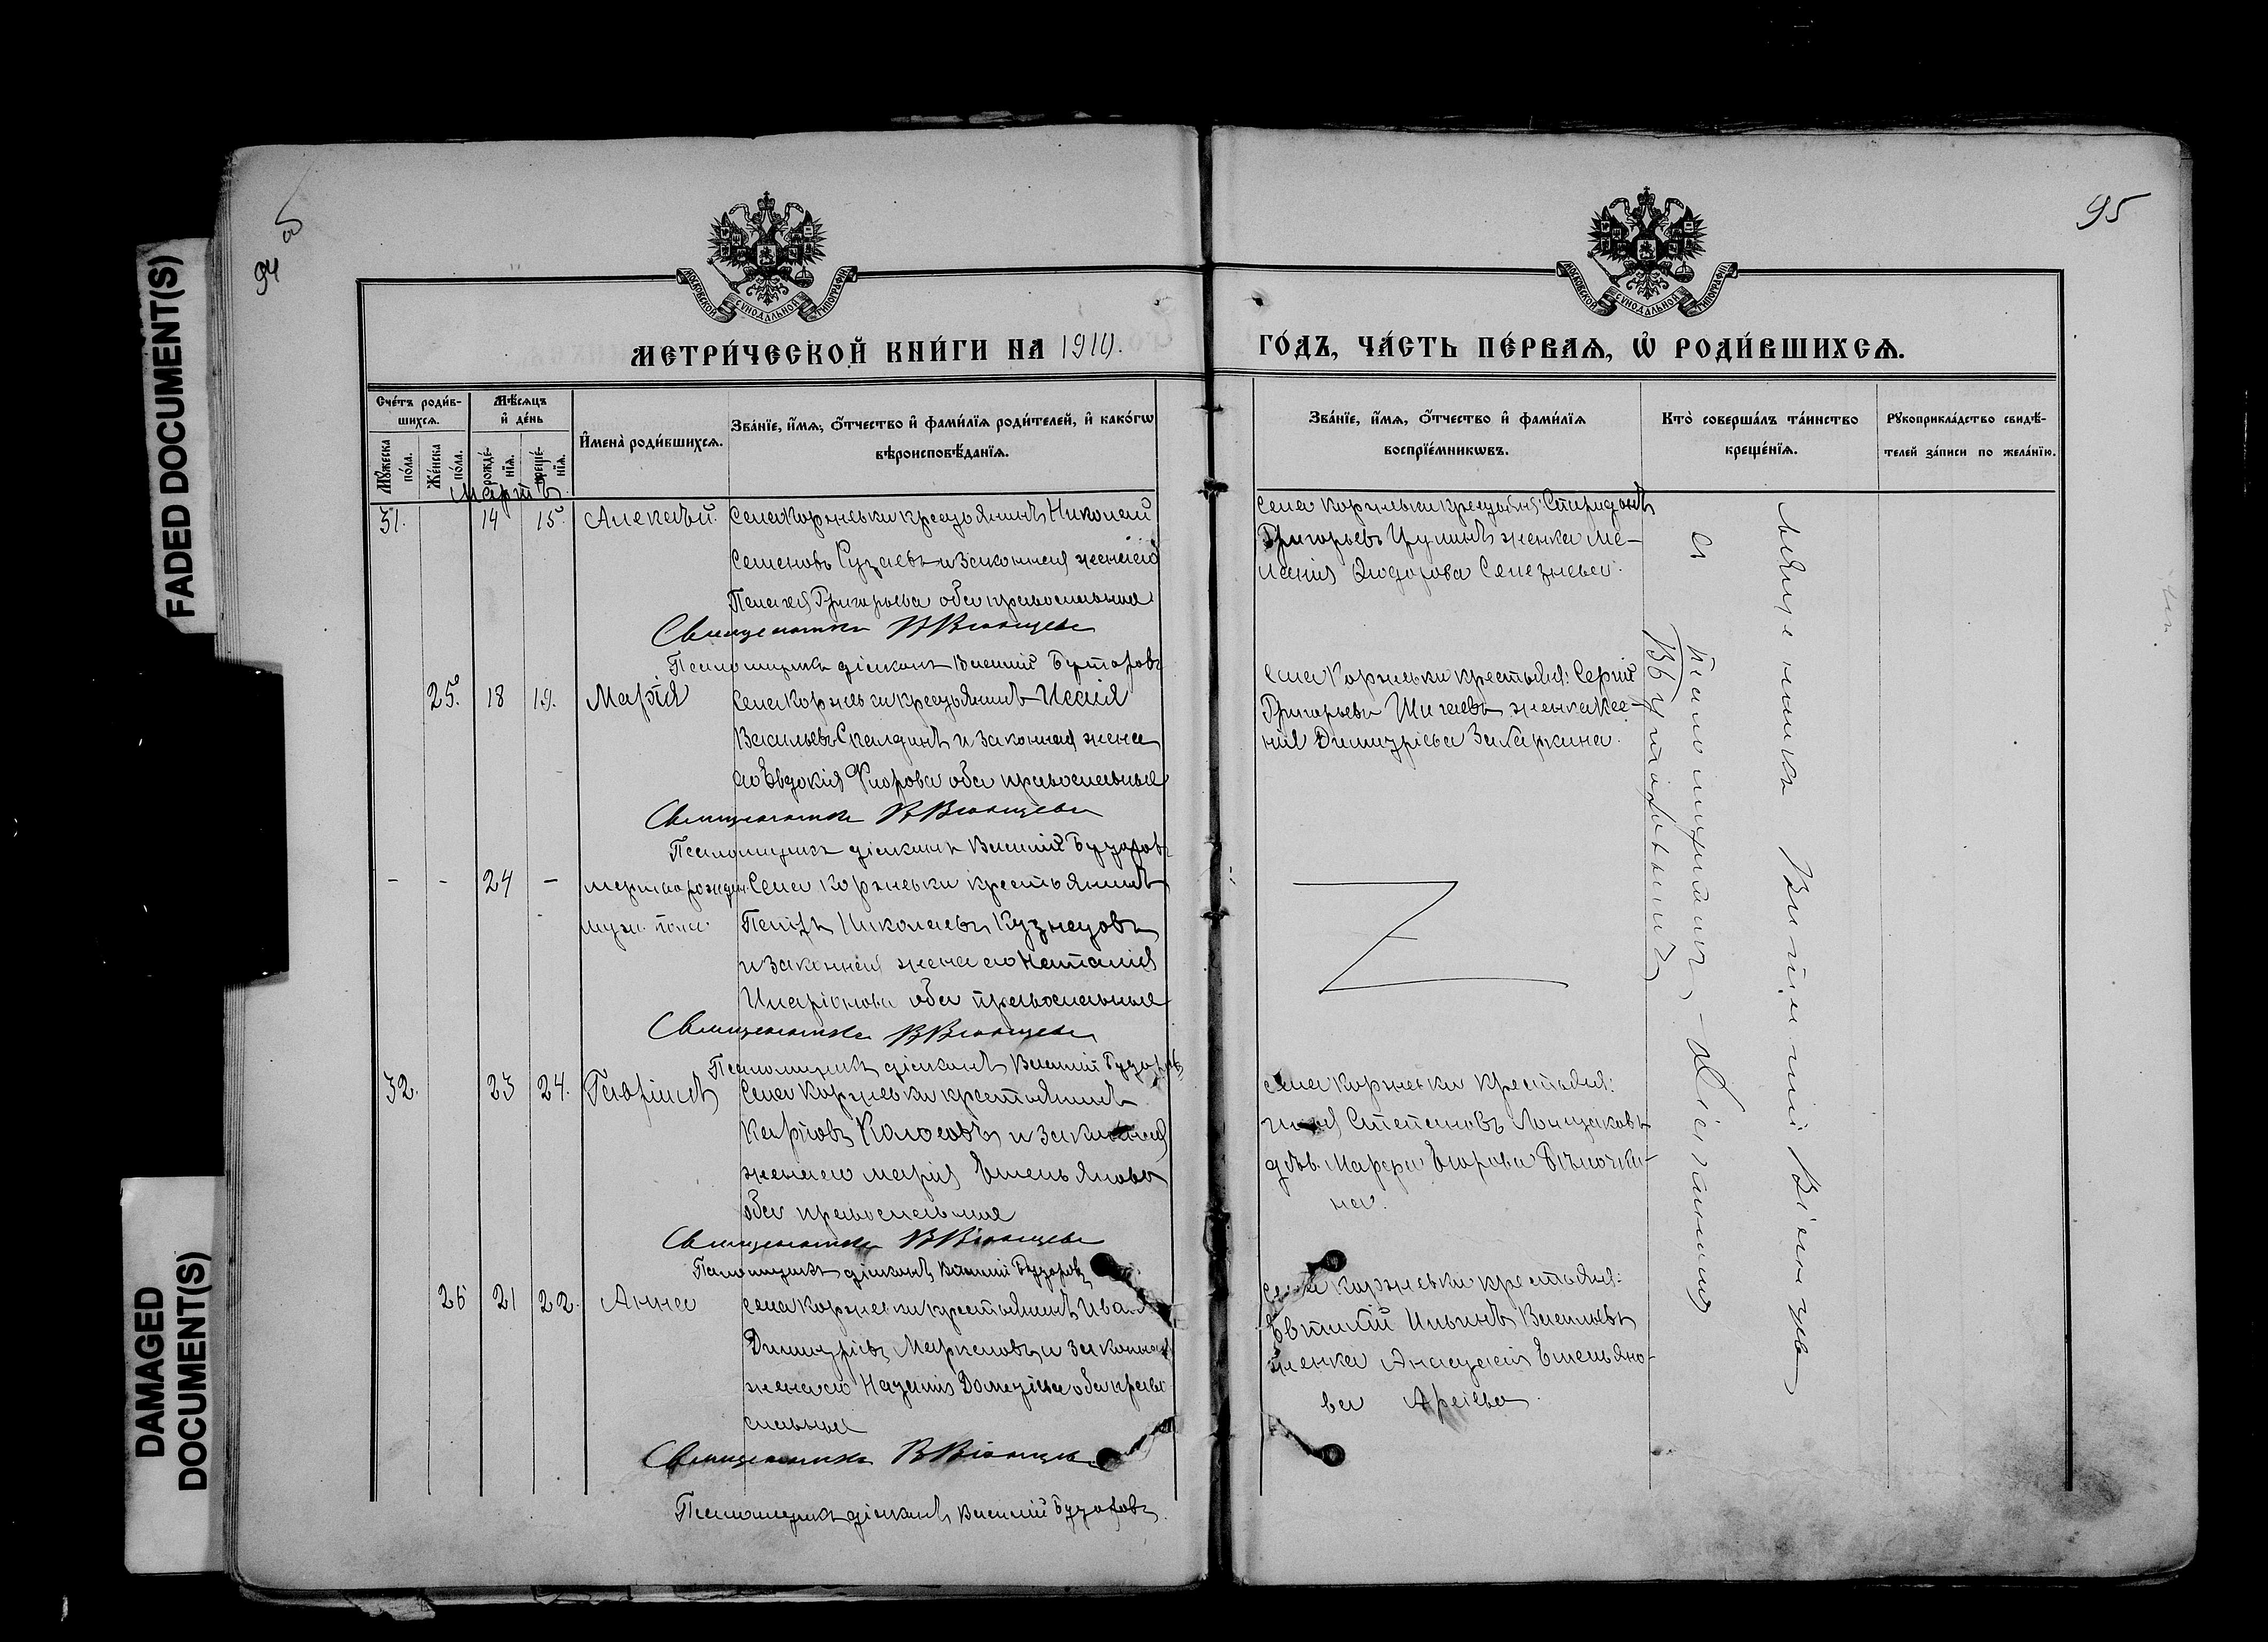 FADED DOCUMENT(S)
DAMAGED
DOCUMENT(S)
94 об
95
МОСКОВСКОЙ СѴНОДАЛЬНОЙ ТИПОГРАФІИ
МОСКОВСКОЙ СѴНОДАЛЬНОЙ ТИПОГРАФІИ
МЕТРИ́ЧЕСКОЙ КНИ́ГИ НА 1910.
ГО́ДЪ, ЧА́СТЬ ПЕ́РВАѦ, Ѡ҆ РОДИ́ВШИХСѦ.
Сче́тъ роди́в-
шихсѧ.
Мꙋ́жеска
по́ла.
Же́нска
по́ла.
Мѣ́сѧцъ
и҆ де́нь
рожде́-
нїѧ.
креще́-
нїѧ.
И҆мена̀ роди́вшихсѧ.
Зва́нїе, и҆́мѧ, ѻ҆́тчество и҆ фами́лїѧ роди́телей, и҆ како́гѡ
вѣроисповѣ́данїѧ.
Зва́нїе, и҆́мѧ, ѻ҆́тчество и҆ фами́лїѧ
воспрїе́мникѡвъ.
Кто̀ соверша́лъ та́инство
креще́нїѧ.
Рꙋкоприкла́дство свидѣ́-
телей за́писи по жела́нїю.
Мартъ
31. 14 15. Алексѣй. Села Коржевки крестьянинъ Николай
Семеновъ Кузаевъ и законная жена его
Пелагея Григорьева оба православные
Священникъ В Віюнцевъ
Псаломщикъ діаконъ Василій Бутаровъ
Села Коржевки крестьян: Спиридонъ
Григорьевъ женка Ме-
ланія Ѳеодорова Селезнева.
25. 18 19. Марія Села Коржевки крестьянинъ Исаія
Васильевъ Скалдинъ и законная жена
его Евдокія Фролова оба православные
Священникъ В Віюнцевъ
Псаломщикъ діаконъ Василій Бутаровъ
Села Коржевки крестьян: Сергій
Григорьевъ Шигаевъ женка Ксе-
нія Димитріева Захаркина.
- - 24 - мертворожден. Села Коржевки крестьянинъ
муж. пола Петръ Николаевъ Кузнецовъ
и законная жена его Наталія
Иларіонова оба православные
Священникъ В Віюнцевъ
Псаломщикъ діаконъ Василій Бутаровъ
32. 23 24. Гавріилъ Села Коржевки крестьянинъ
Карповъ Колосовъ и законная
жена его Марія Емельянова
оба православные
Священникъ В Віюнцевъ
Псаломщикъ діаконъ Василій Бутаровъ
Села Коржевки крестьян:
Степановъ
дѣв. Марѳа Егорова Бѣлочки-
на.
26 21 22. Анна Села Коржевки крестьянинъ Иванъ
Димитріевъ Маркеловъ и законная
жена его Наталія оба право
славные
Священникъ В Віюнцевъ
Псаломщикъ діаконъ Василій Бутаровъ
Села Коржевки крестьян:
Евтихій Ильинъ Васильевъ
женка Анастасія Емельяно-
ва
Священникъ Віюнцевъ
съ псаломщикомъ - діакономъ
В. Бутаровымъ